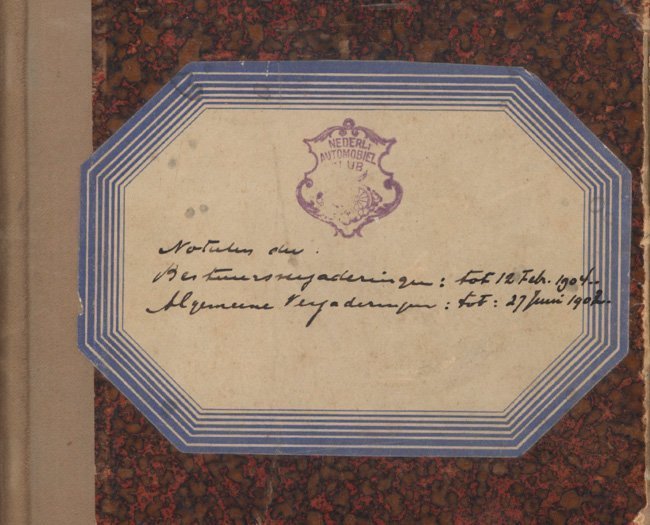 NEDERL:
AUTOMOBIEL
CLUB
Notulen der.
Bestuursvergaderingen: tot 12 Febr. 1904.
Algemeene Vergaderingen: tot: 27 Juni 1902.